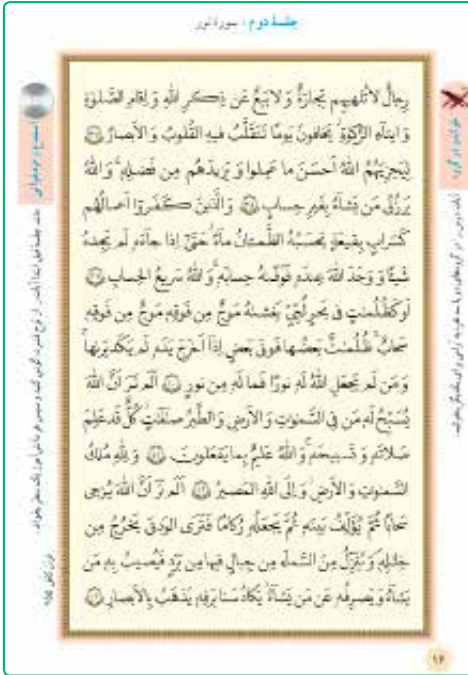 جلسهٔ دوم: سورهٔ نور
رِجالٌ لاتُلهيهِم تِجارَةٌ وَ لابَيعٌ عَن ذِكرِ اللهِ وَ اِقامِ الصَّلوٰةِ
وَ ايتآءِ الزَّكوٰةِ يَخافونَ يَومًا تَتَقَلَّبُ فيهِ القُلوبُ وَ الاَبصارُ ﴿٣٧﴾
لِيَجزِيَهُمُ اللهُ اَحسَنَ ما عَمِلوا وَ يَزيدَهُم مِن فَضلِهِ وَ اللهُ
يَرزُقُ مَن يَشآءُ بِغَيرِ حِسابٍ ﴿٣٨﴾ وَ الَّذينَ كَفَروا اَعمالُهُم
كَسَرابٍ بِقيعَةٍ يَحسَبُهُ الظَّمـٔانُ مآءً حَتّىٰ اِذا جآءَهُ لَم يَجِدهُ
شَيـًٔا وَ وَجَدَ اللهَ عِندَهُ فَوَفّىٰهُ حِسابَهُ وَ اللهُ سَريعُ الحِسابِ ﴿٣٩﴾
اَو كَظُلُمٰتٍ فى بَحرٍ لُجِّىٍّ يَغشىٰهُ مَوجٌ مِن فَوقِهِ مَوجٌ مِن فَوقِهِ
سَحابٌ ظُلُمٰتٌ بَعضُها فَوقَ بَعضٍ اِذآ اَخرَجَ يَدَهُ لَم يَكَد يَرىٰها
وَ مَن لَم يَجعَلِ اللهُ لَهُ نورًا فَما لَهُ مِن نورٍ ﴿٤٠﴾ اَلَم تَرَ اَنَّ اللهَ
يُسَبِّحُ لَهُ مَن فِى السَّمٰوٰتِ وَ الاَرضِ وَ الطَّيرُ صٰٓفّٰتٍ كُلٌّ قَد عَلِمَ
صَلاتَهُ وَ تَسبيحَهُ وَ اللهُ عَليمٌ بِما يَفعَلونَ ﴿٤١﴾ وَ لِلّٰهِ مُلكُ
السَّمٰوٰتِ وَ الاَرضِ وَ اِلَى اللهِ المَصيرُ ﴿٤٢﴾ اَلَم تَرَ اَنَّ اللهَ يُزجى
سَحابًا ثُمَّ يُؤَلِّفُ بَينَهُ ثُمَّ يَجعَلُهُ رُكامًا فَتَرَى الوَدقَ يَخرُجُ مِن
خِلٰلِهِ وَ يُنَزِّلُ مِنَ السَّمآءِ مِن جِبالٍ فيها مِن بَرَدٍ فَيُصيبُ بِهِ مَن
يَشآءُ وَ يَصرِفُهُ عَن مَن يَشآءُ يَكادُ سَنا بَرقِهِ يَذهَبُ بِالاَبصارِ ﴿٤٣﴾
خواندن در گروه: